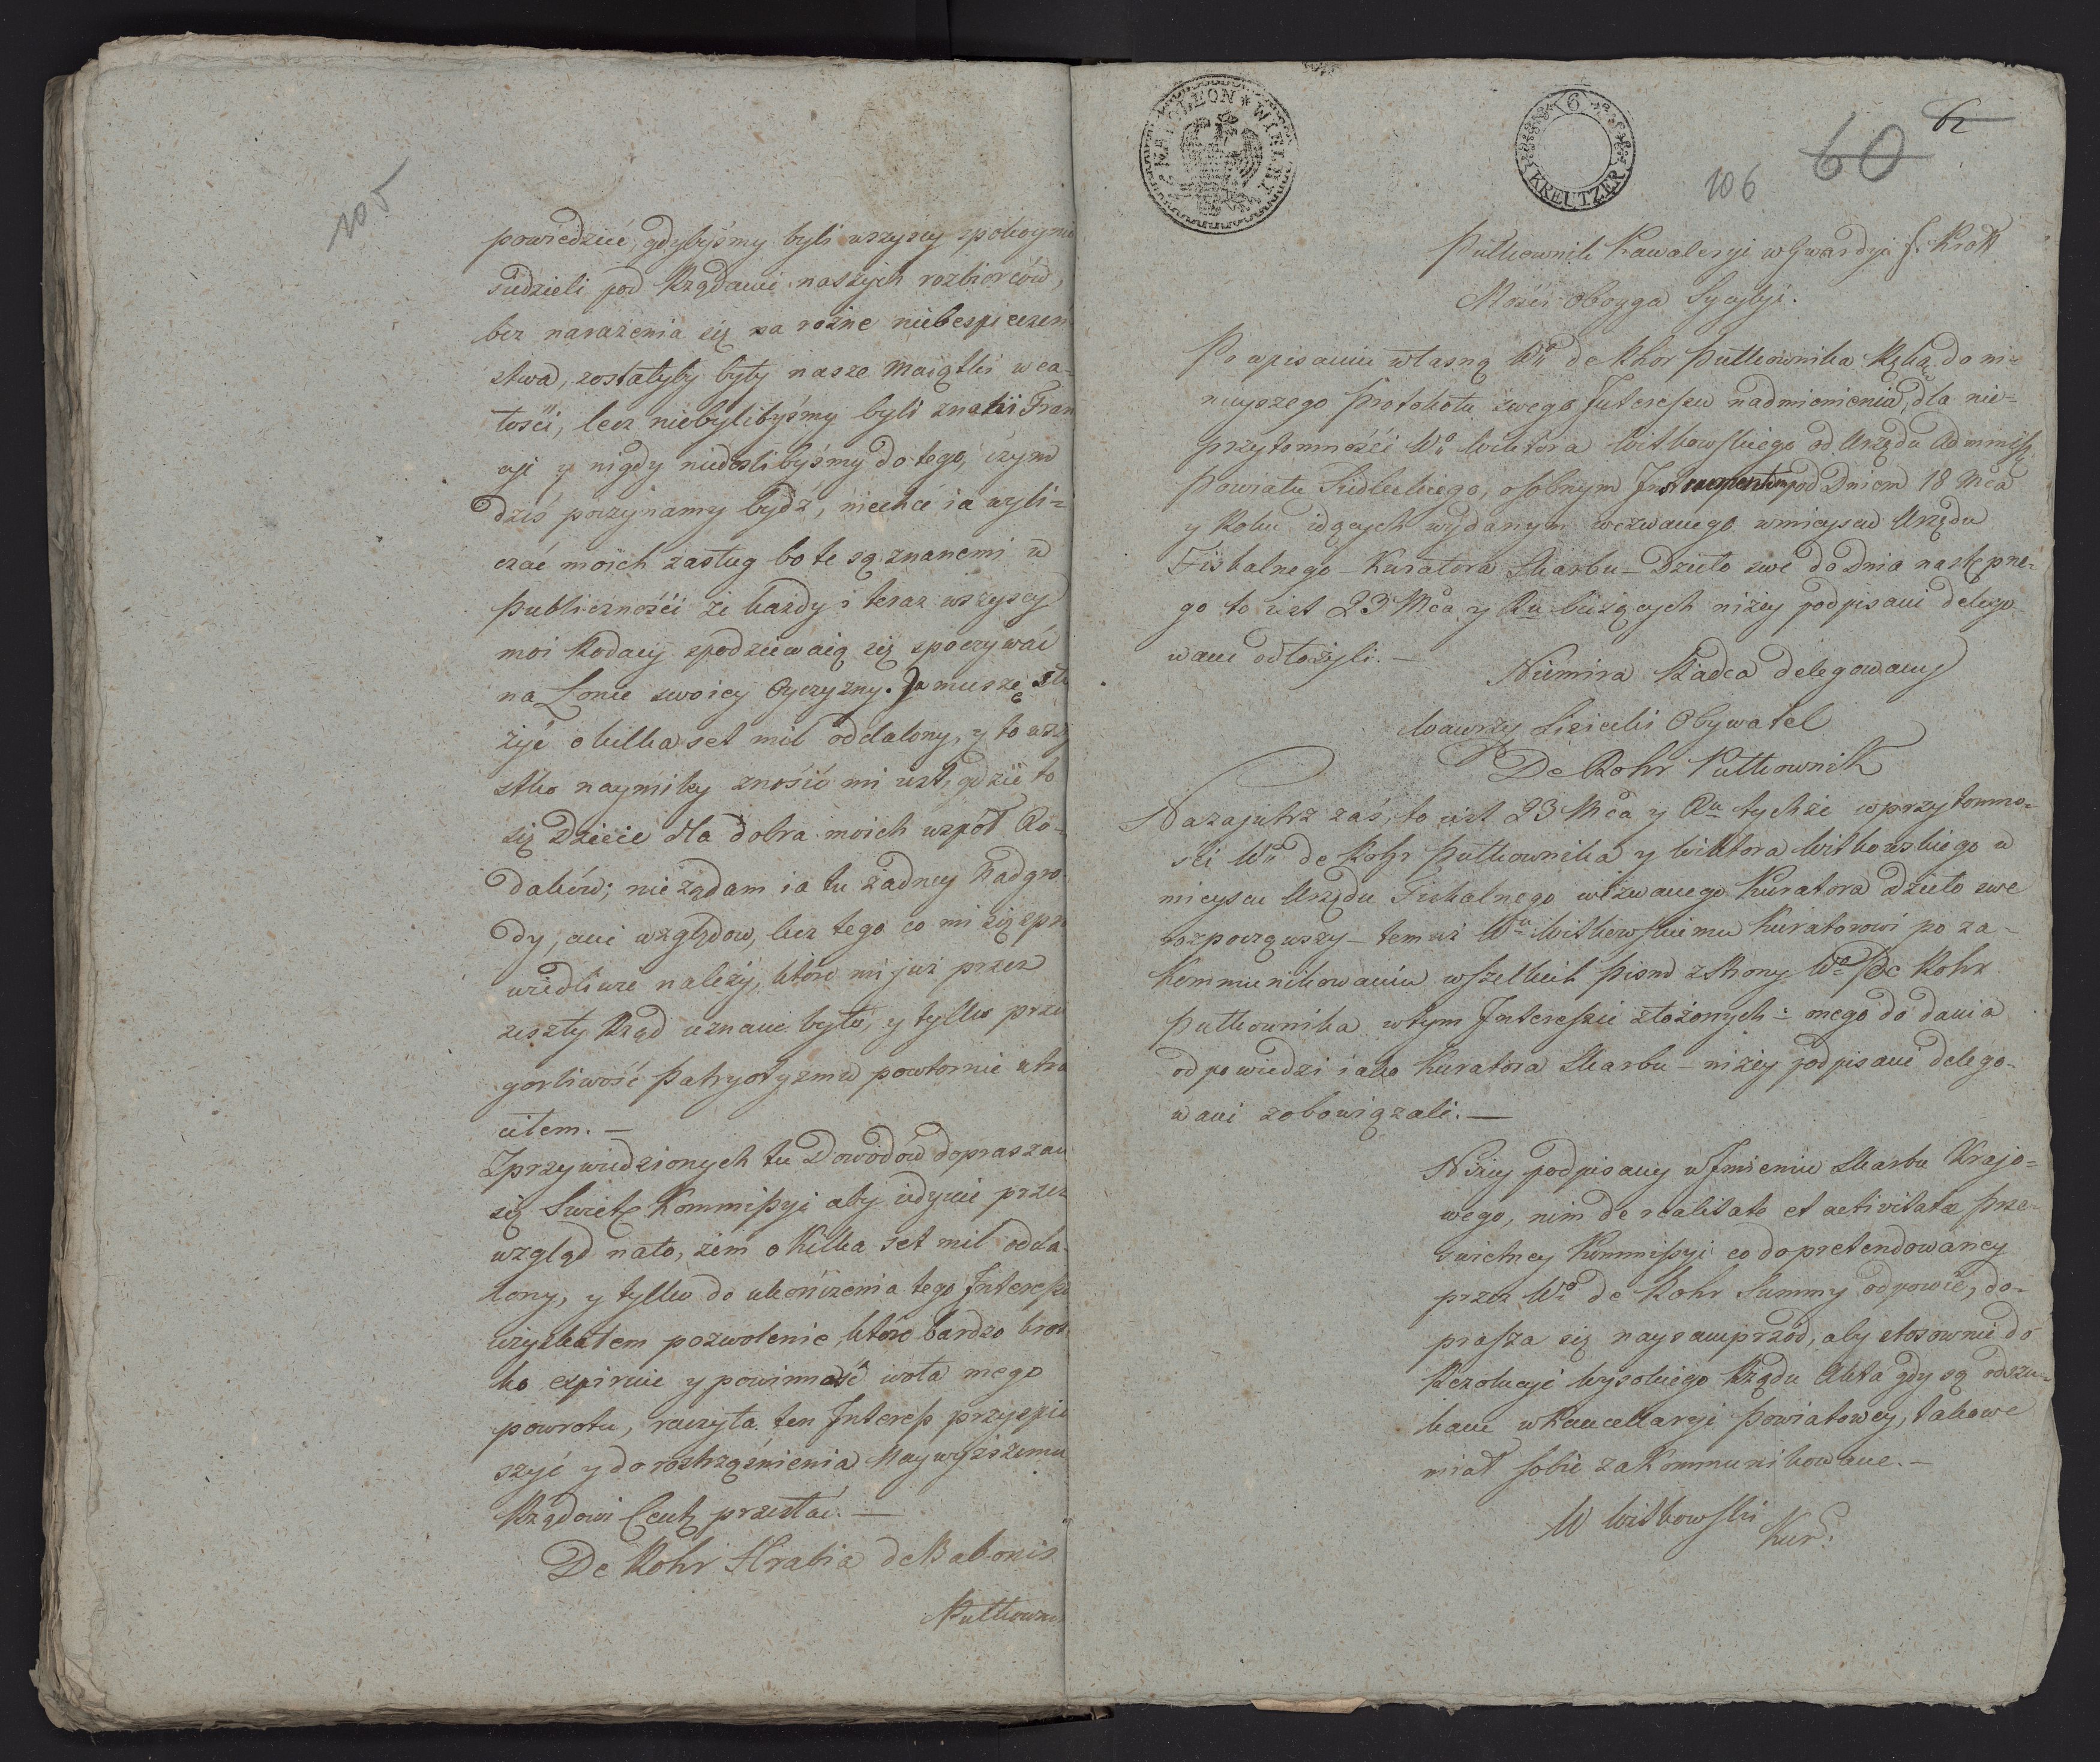 105
powiedzieć, gdybyśmy byli wszyscy spokoynie
siedzieli pod Rządami naszych rozbiorców,
bez narażenia się na rożne niebespieczen
stwa, zostałyby były nasze Maiątki w ca-
łości, lecz niebylibyśmy byli znani Fran
cyi y nigdy niedoszlibyśmy do tego, czym
dziś poczynamy bydź, niechce ia wyli=
czać moich zasług bo te są znanemi w
Publiczności że każdy i teraz wszyscy
moi Rodacy spodziewaią się spoczywać
na Łonie swoiey Oyczyzny. Ja muszę słu
żyć o kilka set mil oddalony, y to wszy
stko naymiley znosić mi iest, gdzie to
się dzieie dla dobra moich wspoł Ro-
daków; nie żądam ia tu żadney Nadgro
dy, ani względow, lecz tego co mi się spra
wiedliwie należy, które mi już przez
zeszły Rząd uznane było, y tylko przez
gorliwość Patryotyzmu powtornie utra
ciłem. —
Z przywiedzionych tu Dowodów dopraszam
się Swietę Kommissyi aby iedynie przez
wzgląd na to, żem o kilka set mil odda-
lony, y tylko do ukończenia tego Interessu
uzyskałem pozwolenie, które bardzo krot
ko expiruie y powinność woła mego
powrotu, raczyła ten Interess przyspie
szyć y do rostrząśnienia Naywyższemu
Rządowi Centr przesłać. —
De Rohr Hrabia de Babonis
Pułkowni
NAPOLEON * WIELKI
6
KREUTZER
62
60
106
Pułkownik Kawaleryi w Gwardyi J. Krolł
Mości oboyga Sycylyi.
Po wpisaniu własną Wo de Rhor Pułkownika Ręką do ni=
nieyszego Protokołu swego Interesu nadmienienia, dla nie=
przytomności Wo Wiktora Witkowskiego od Urzędu Adminiss
Powiatu Siedleckiego, osobnym Instrumentem pod Dniem 18 Mca
y Roku idących wydanym wezwanego w mieyscu Urzędu
Fiskalnego – Kuratora Skarbu – Dzieło swe do Dnia następne=
go to iest 23 Mca y Ru bieżących niżey podpisani delego
wani odłożyli. —
Niemira Radca delegowany
Wawrzy Lisiecki Obywatel
De Rohr Pułkownik
Nazajutrz zaś, to iest 23 Mca y Ru tychże w przytomno=
ści Wo de Rohr Pułkownika y Wiktora Witkowskiego w
mieyscu Urzędu Fiskalnego wezwanego Kuratora dzieło swe
rozpocząwszy – temuż Wu Witkowskiemu Kuratorowi po za-
Kommunikowaniu wszelkich Pism z strony Wo De Rohr
Pułkownika w tym Interessie złożonych : onego do dania
odpowiedzi iako Kuratora Skarbu – niżey podpisani delego-
wani zobowiązali. —
Niżey podpisany w Imieniu Skarbu Krajo=
wego, nim de realitate et activitate Prze-
swietney Kommissyi co do pretendowaney
przez Wo de Rohr Summy odpowie, do-
prasza się naysamprzód, aby stosownie do
Rezolucyi Wysokiego Rządu Akta gdy są odszu=
kane w Kancellaryi Powiatowey, takowe
miał sobie zakommunikowane. —
W Witkowski
Kur: